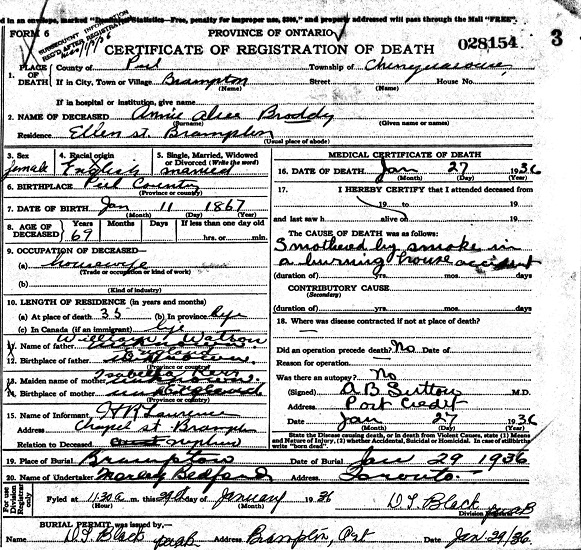 d in an envelope, marked "Statistics—Free, penalty for improper use, $300," and properly addressed will pass through the Mail "FREE".
FORM 6
PROVINCE OF ONTARIO
CERTIFICATE OF REGISTRATION OF DEATH
028154
3
1. PLACE OF DEATH
County of Peel Township of Chinguacousy
If in City, Town or Village Brampton Street House No.
(Name) (Name)
If in hospital or institution, give name
2. NAME OF DECEASED Annie Alice Broddy
(Surname) (Given name or names)
Residence Ellen St. Brampton
(Usual place of abode)
3. Sex female
4. Racial origin English
5. Single, Married, Widowed or Divorced (Write the word) married
6. BIRTHPLACE Peel County
(Province or country)
7. DATE OF BIRTH Jan 11 1867
(Month) (Day) (Year)
8. AGE OF DECEASED Years 69 Months Days If less than one day old hrs. or min.
9. OCCUPATION OF DECEASED—
(a) housewife
(Trade or occupation or kind of work)
(b)
(Kind of industry)
10. LENGTH OF RESIDENCE (in years and months)
(a) At place of death 35 (b) In province life
(c) In Canada (if an immigrant) life
11. Name of father William Watson
12. Birthplace of father
(Province or country)
13. Maiden name of mother Isabella Kerr
14. Birthplace of mother
(Province or country)
15. Name of Informant H R Laurence
Address Chapel St. Brampton
Relation to Deceased nephew
MEDICAL CERTIFICATE OF DEATH
16. DATE OF DEATH Jan 27 1936
(Month) (Day) (Year)
17. I HEREBY CERTIFY that I attended deceased from
19 to 19
and last saw h alive on 19
The CAUSE OF DEATH was as follows:
Smothered by smoke in
a burning house accident
(duration of) yrs. mos. days
CONTRIBUTORY CAUSE
(Secondary)
(duration of) yrs. mos. days
18. Where was disease contracted if not at place of death?
Did an operation precede death? No Date of
Reason for operation
Was there an autopsy? No
(Signed) A B Sutton M.D.
Address Port Credit
Date Jan 27 1936
(Month) (Day) (Year)
State the Disease causing death, or in death from Violent Causes, state (1) Means and Nature of Injury, (2) whether Accidental, Suicidal or Homicidal. In case of stillbirths write "born dead".
19. Place of Burial Brampton Date of Burial Jan 29 1936
20. Name of Undertaker Morley Bedford Address Toronto
For use of Division Registrar only
Fyled at 11:30 a. m. this 29th day of January 1936 D. T. Black
(Hour) (Month) Division Registrar
BURIAL PERMIT was issued by—
Name D. T. Black Address Brampton, Ont Date Jan. 29/36.